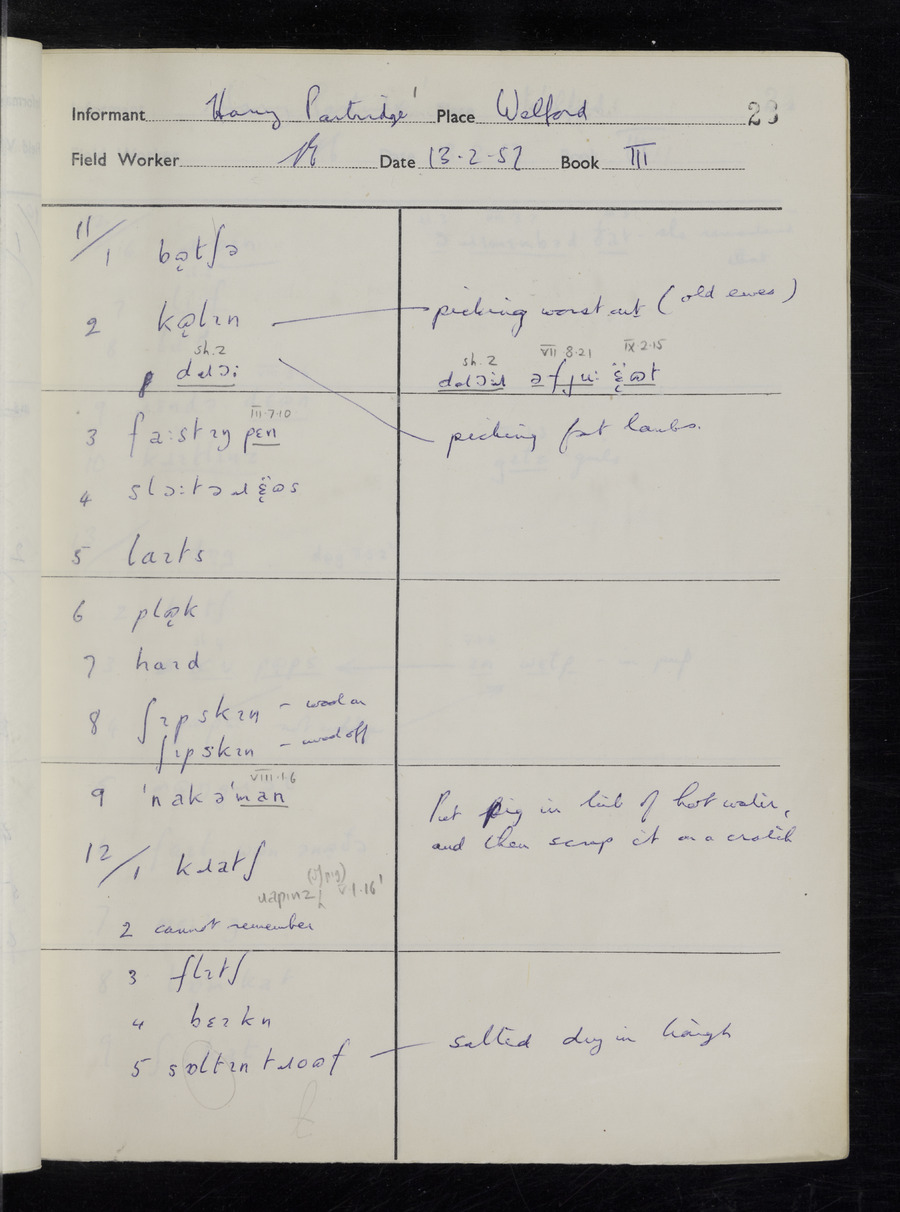 Informant Harry Partridge 1 Place Welford 23
Field Worker Date 13.2.57 Book III
11/1 bə̨tʃə
2 kə̨lɪn picking worst out (old ewes)
sh.2 sh.2 VII.8.21 IX 2.15
3 fa:stɪŋ pɛn III.7.10 picking fat lambs.
4
5 laɪts
6 plə̨k
7 haɹd
8 ʃɪpskɪn - wool on
ʃɪpskɪn - wool off
VIII.1.6
9 ˈnakəˈman Put pig in tub of hot water,
and then scrap it on a cratch
12/1 kɹatʃ
(of pig) V 1.16
2 cannot remember
3 flɪtʃ
4 bɛɪkn
5 sɒltɪn tɹɔəf salted dry in